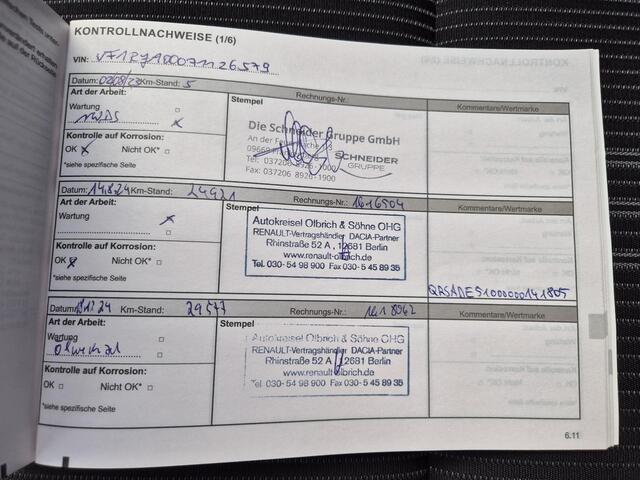 KONTROLLNACHWEISE (1/6)
VIN:
Datum: Km-Stand: 5
Rechnungs-Nr.:
Art der Arbeit:
Wartung
Stempel
Kommentare/Wertmarke
Die Schneider Gruppe GmbH
SCHNEIDER
GRUPPE
Tel: 037206 8926-1000
Fax: 037206 8926-1900
Kontrolle auf Korrosion:
OK x Nicht OK*
*siehe spezifische Seite
Datum: 14.8.24 Km-Stand: 24921
Rechnungs-Nr.: 1616904
Art der Arbeit:
Wartung x
Stempel
Kommentare/Wertmarke
Autokreisel Olbrich & Söhne OHG
RENAULT-Vertragshändler DACIA-Partner
Rhinstraße 52 A, 12681 Berlin
www.renault-olbrich.de
Tel. 030-54 98 900 Fax 030-5 45 89 35
Kontrolle auf Korrosion:
OK x Nicht OK*
*siehe spezifische Seite
Datum: Km-Stand: 29577
Rechnungs-Nr.: 1618042
Art der Arbeit:
Wartung
Stempel
Kommentare/Wertmarke
Autokreisel Olbrich & Söhne OHG
RENAULT-Vertragshändler DACIA-Partner
Rhinstraße 52 A, 12681 Berlin
www.renault-olbrich.de
Tel. 030-54 98 900 Fax 030-5 45 89 35
Kontrolle auf Korrosion:
OK Nicht OK*
*siehe spezifische Seite
6.11